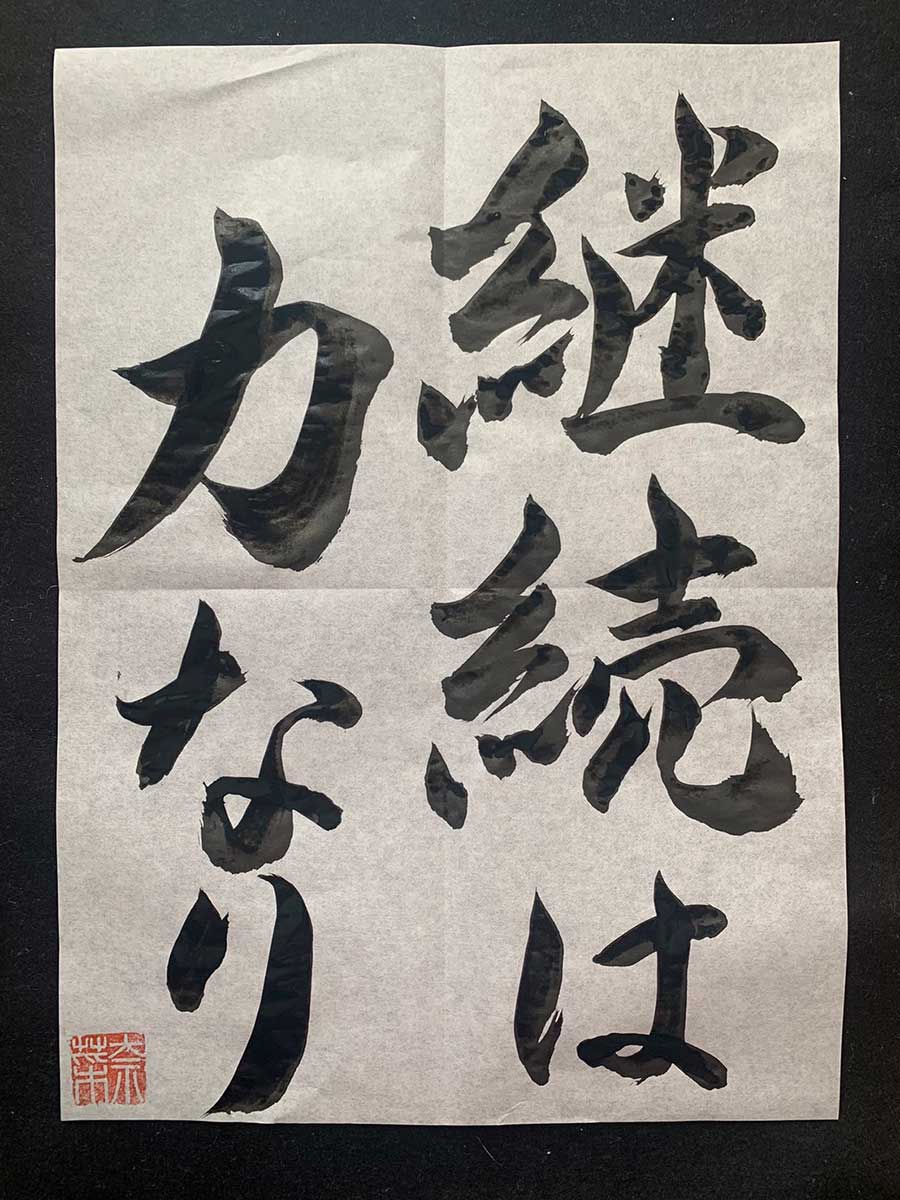 継続は
力なり
奈菜